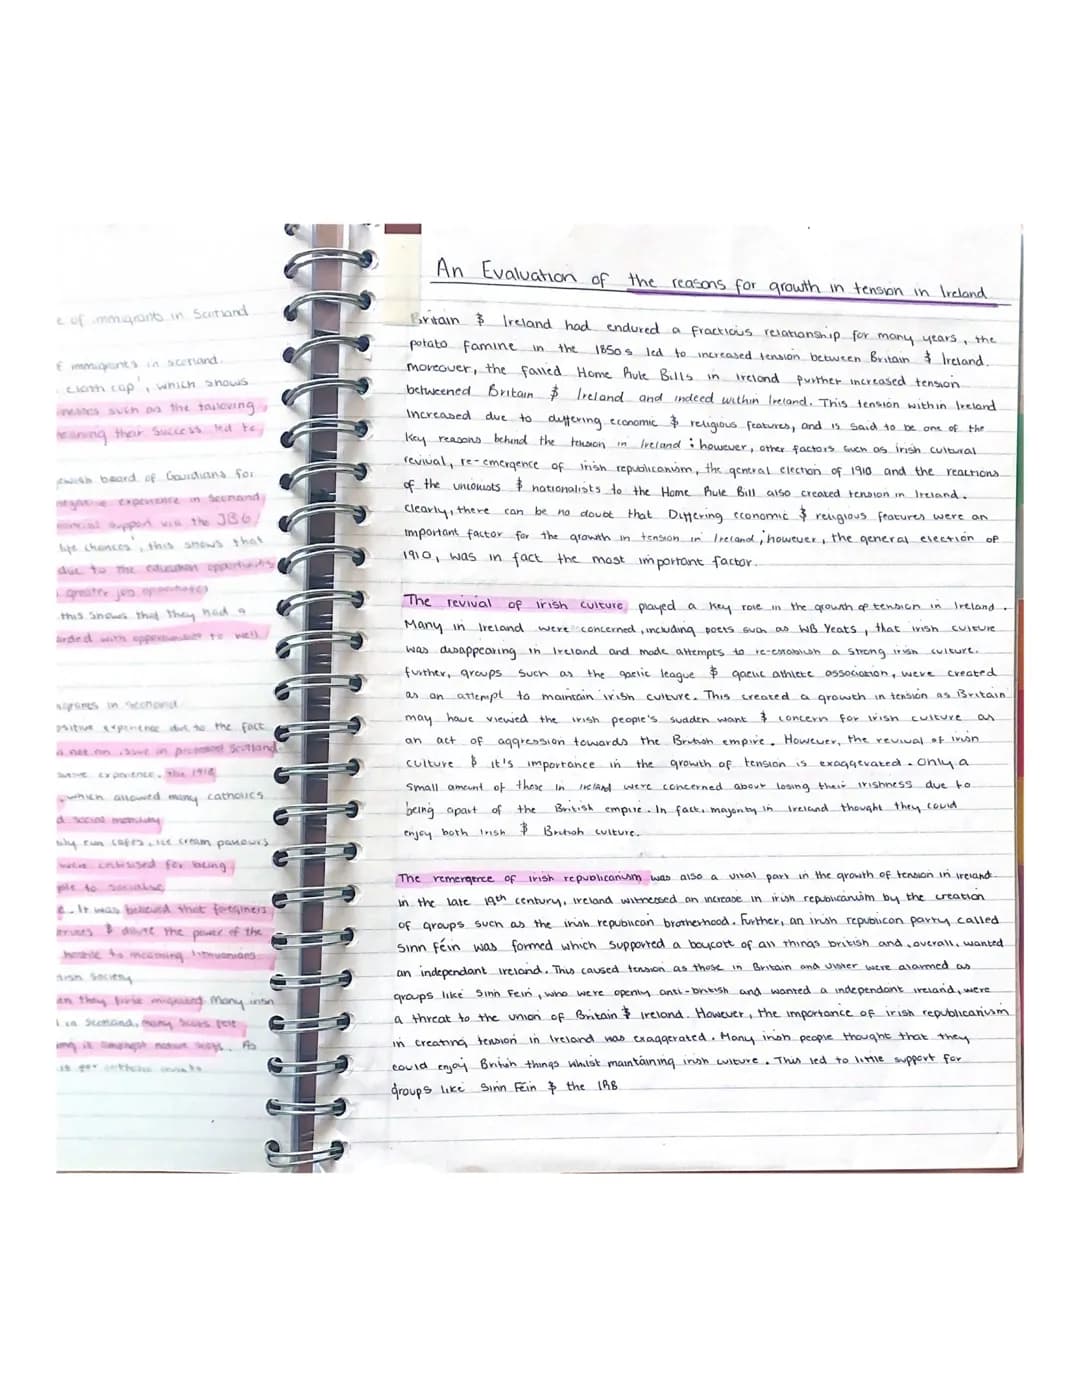 e of immigrants in Scotland
f immigrants in scotland.
cloth cap', which shows
such as the tailoring
meaning their success led to
ewish board of Guardians for
negative experience in Scotland
support via the JBG
life chances', this shows that
due to the education opportunity
greater job opportunities
this shows that they had a
with opportunities to well
in Scotland
ositive experience due to the fact
not an issue in protestant Scotland
experience. The 1918
which allowed many catholics
d social mobility
run cafes, ice cream parlours
were criticised for being
ple to socialise
e. It was believed that foreigners
& dilute the power of the
hostile to incoming lithuanians
society
en they first migrated. Many irish
in Scotland, many Scots felt
amongst native Scots. As
An Evaluation of the reasons for growth in tension in Ireland
Britain & Ireland had endured a fractious relationship for many years, the
potato famine in the 1850s led to increased tension between Britain & Ireland.
moreover, the failed Home Rule Bills in ireland further increased tension
betweened Britain & Ireland and indeed within Ireland. This tension within Ireland
Increased due to differing economic & religious features, and is said to be one of the
key reasons behind the tension in Ireland; however, other factors such as irish cultural
revival, re-emergence of irish republicanism, the general election of 1910 and the reactions
of the unionists & nationalists to the Home Rule Bill also created tension in Ireland.
Clearly, there can be no doubt that Differing economic & religious features were an
important factor for the growth in tension in Ireland; however, the general election of
1910, was in fact the most important factor.
The revival of irish culture played a key role in the growth of tension in Ireland.
Many in Ireland were concerned, including poets such as WB Yeats, that irish culture
was disappearing in Ireland and made attempts to re-establish a strong irish culture.
further, groups such as the gaelic league & gaelic athlete association, were created
as an attempt to maintain irish culture. This created a growth in tension as Britain
may have viewed the irish people's sudden want & concern for irish culture as
an act of aggression towards the British empire. However, the revival of irish
culture & it's importance in the growth of tension is exaggerated. Only a
small amount of those in Ireland were concerned about losing their irishness due to
being apart of the British empire. In fact, majority in Ireland thought they could
enjoy both Irish & British culture.
The remergerce of irish republicanism was also a vital part in the growth of tension in ireland.
in the late 19th century, Ireland witnessed an increase in irish republicanism by the creation
of groups such as the irish republican brotherhood. Further, an irish republican party called
Sinn féin was formed which supported a boycott of all things british and, overall, wanted
an independant ireland. This caused tension as those in Britain and ulster were alarmed as
groups like Sinn Fein, who were openly anti-british and wanted a independant ireland, were
a threat to the union of Britain & ireland. However, the importance of irish republicanism
in creating tension in Ireland was exaggerated. Many irish people thought that they
could enjoy British things whilst maintaining irish culture. This led to little support for
groups like Sinn Féin & the IRB